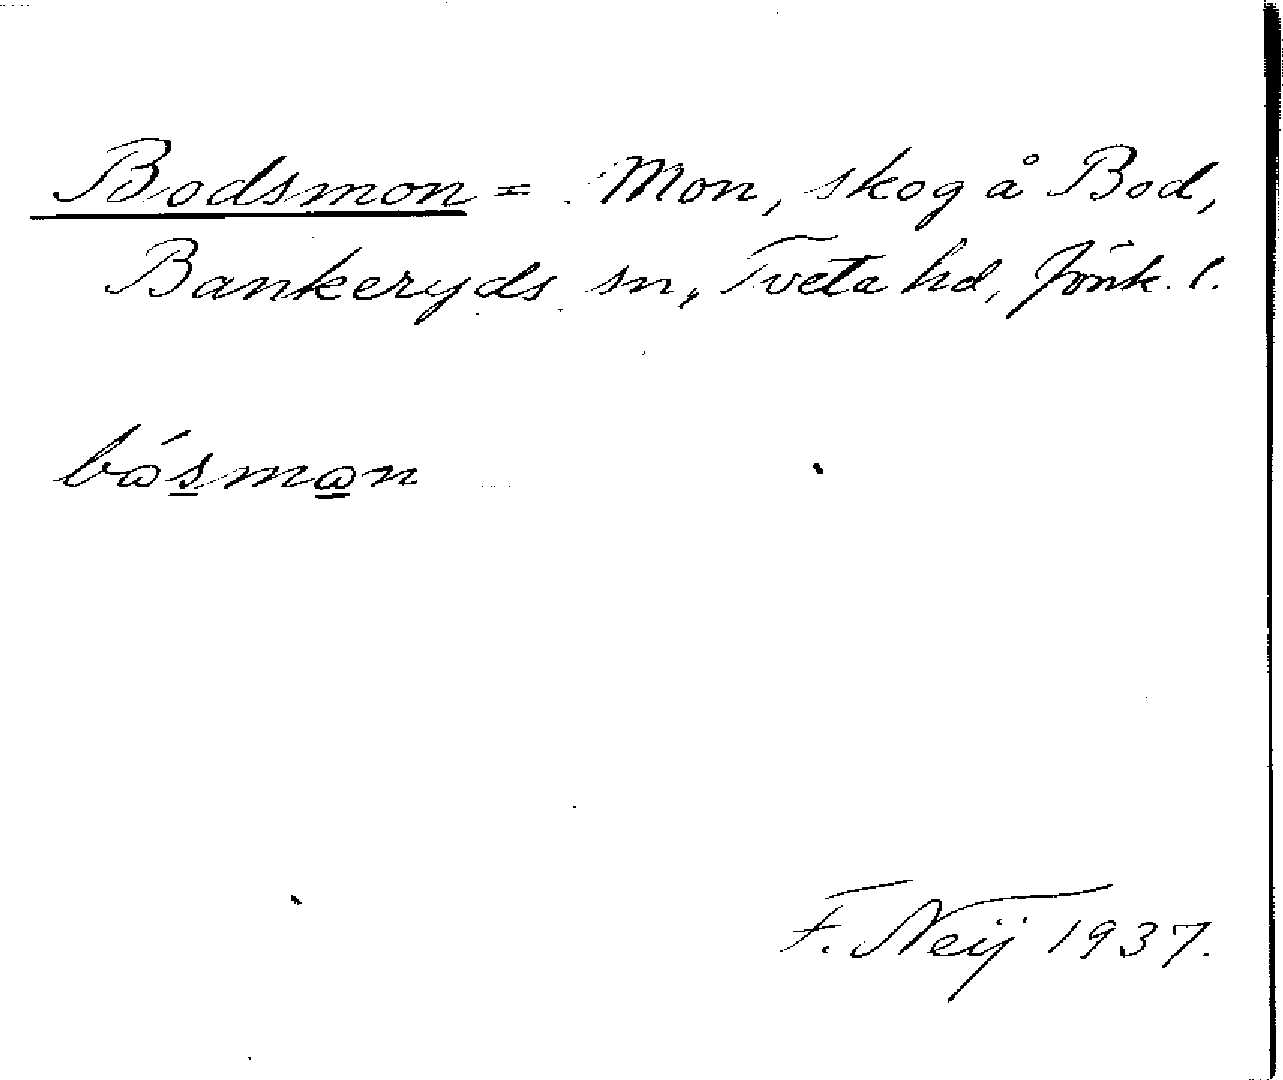 Bodsmon = Mon, skog å Bod,
Bankeryds sn, Tveta hd, Jönk. l.
bósmon
F. Neij 1937.